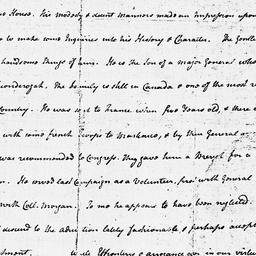 House. His modesty & decent manners made an Impression upon
to make some Inquiries into his History & Character. The Gentle
handsome things of him. He is the Son of a major General who
ionderogah. The family is still in Canada & one of the most r
Country. He was sent to France when five Years old, & there e
with some french Troops to Martinico, & by their General
was recommended to Congress. They gave him a Brevet for a
n. He served last Campaign as a Volunteer, first with General
with Coll. Morgan. To me he appears to have been neglected.
descend to the adulation lately fashionable & perhaps accept
tment. to Effrontery & arrogance even in our virtu